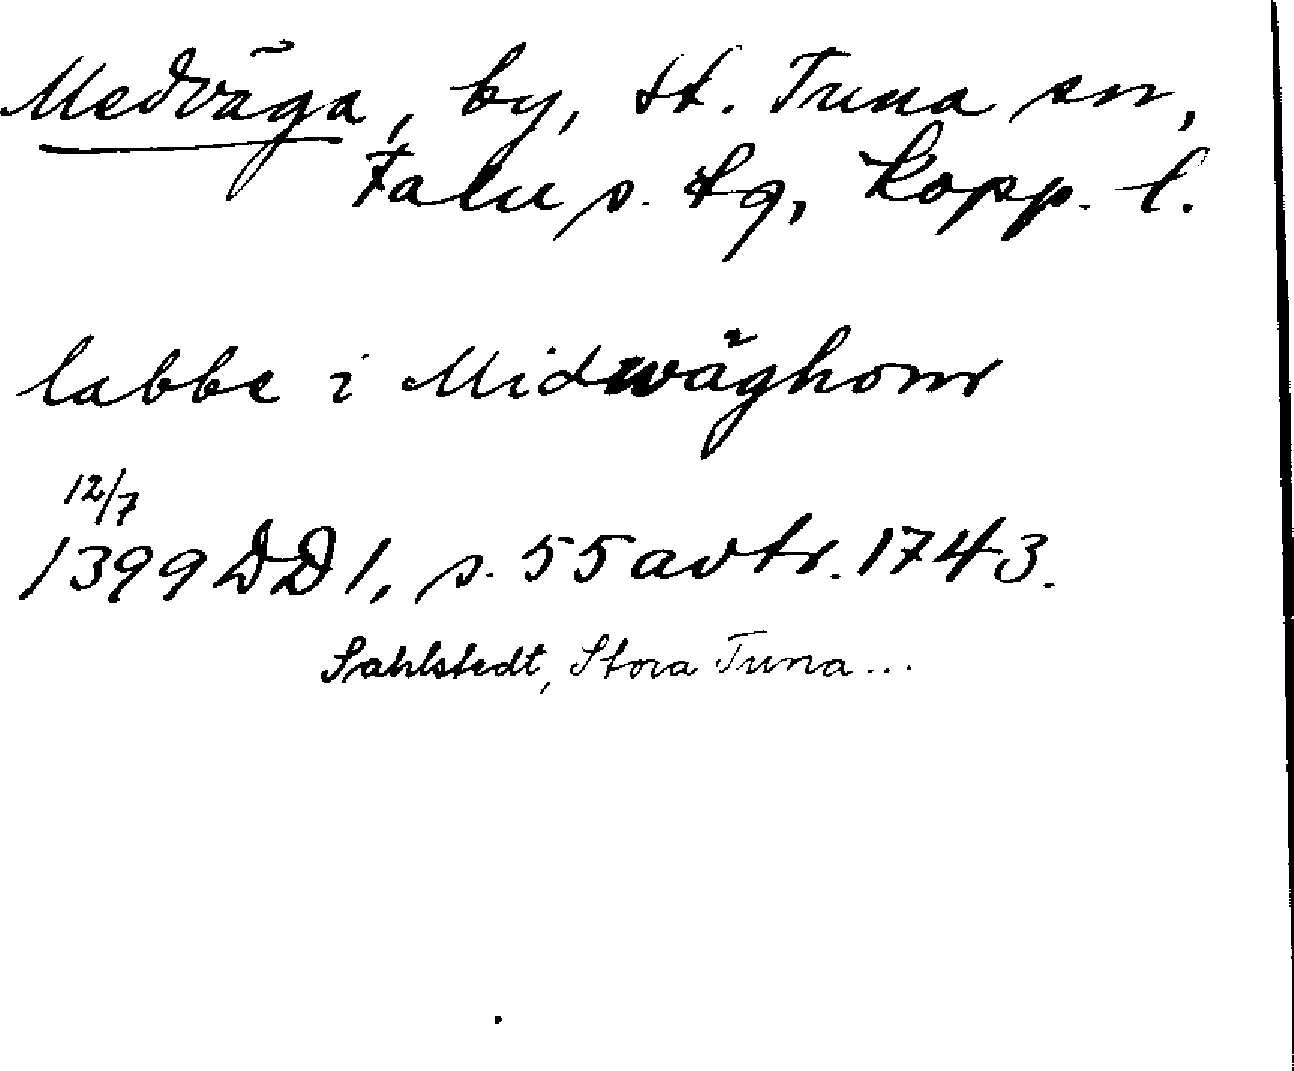 Medväga, by, St. Tuna sn,
Falu s. tg, Kopp. l.
labbe i Midwäghom
12/7
1399 DD 1, s. 55 avtr. 1743.
Sahlstedt, Stora Tuna...